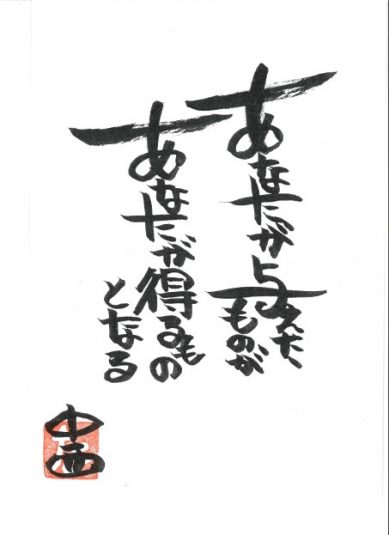 あなたが与えた
ものが
あなたが得るもの
となる
中西